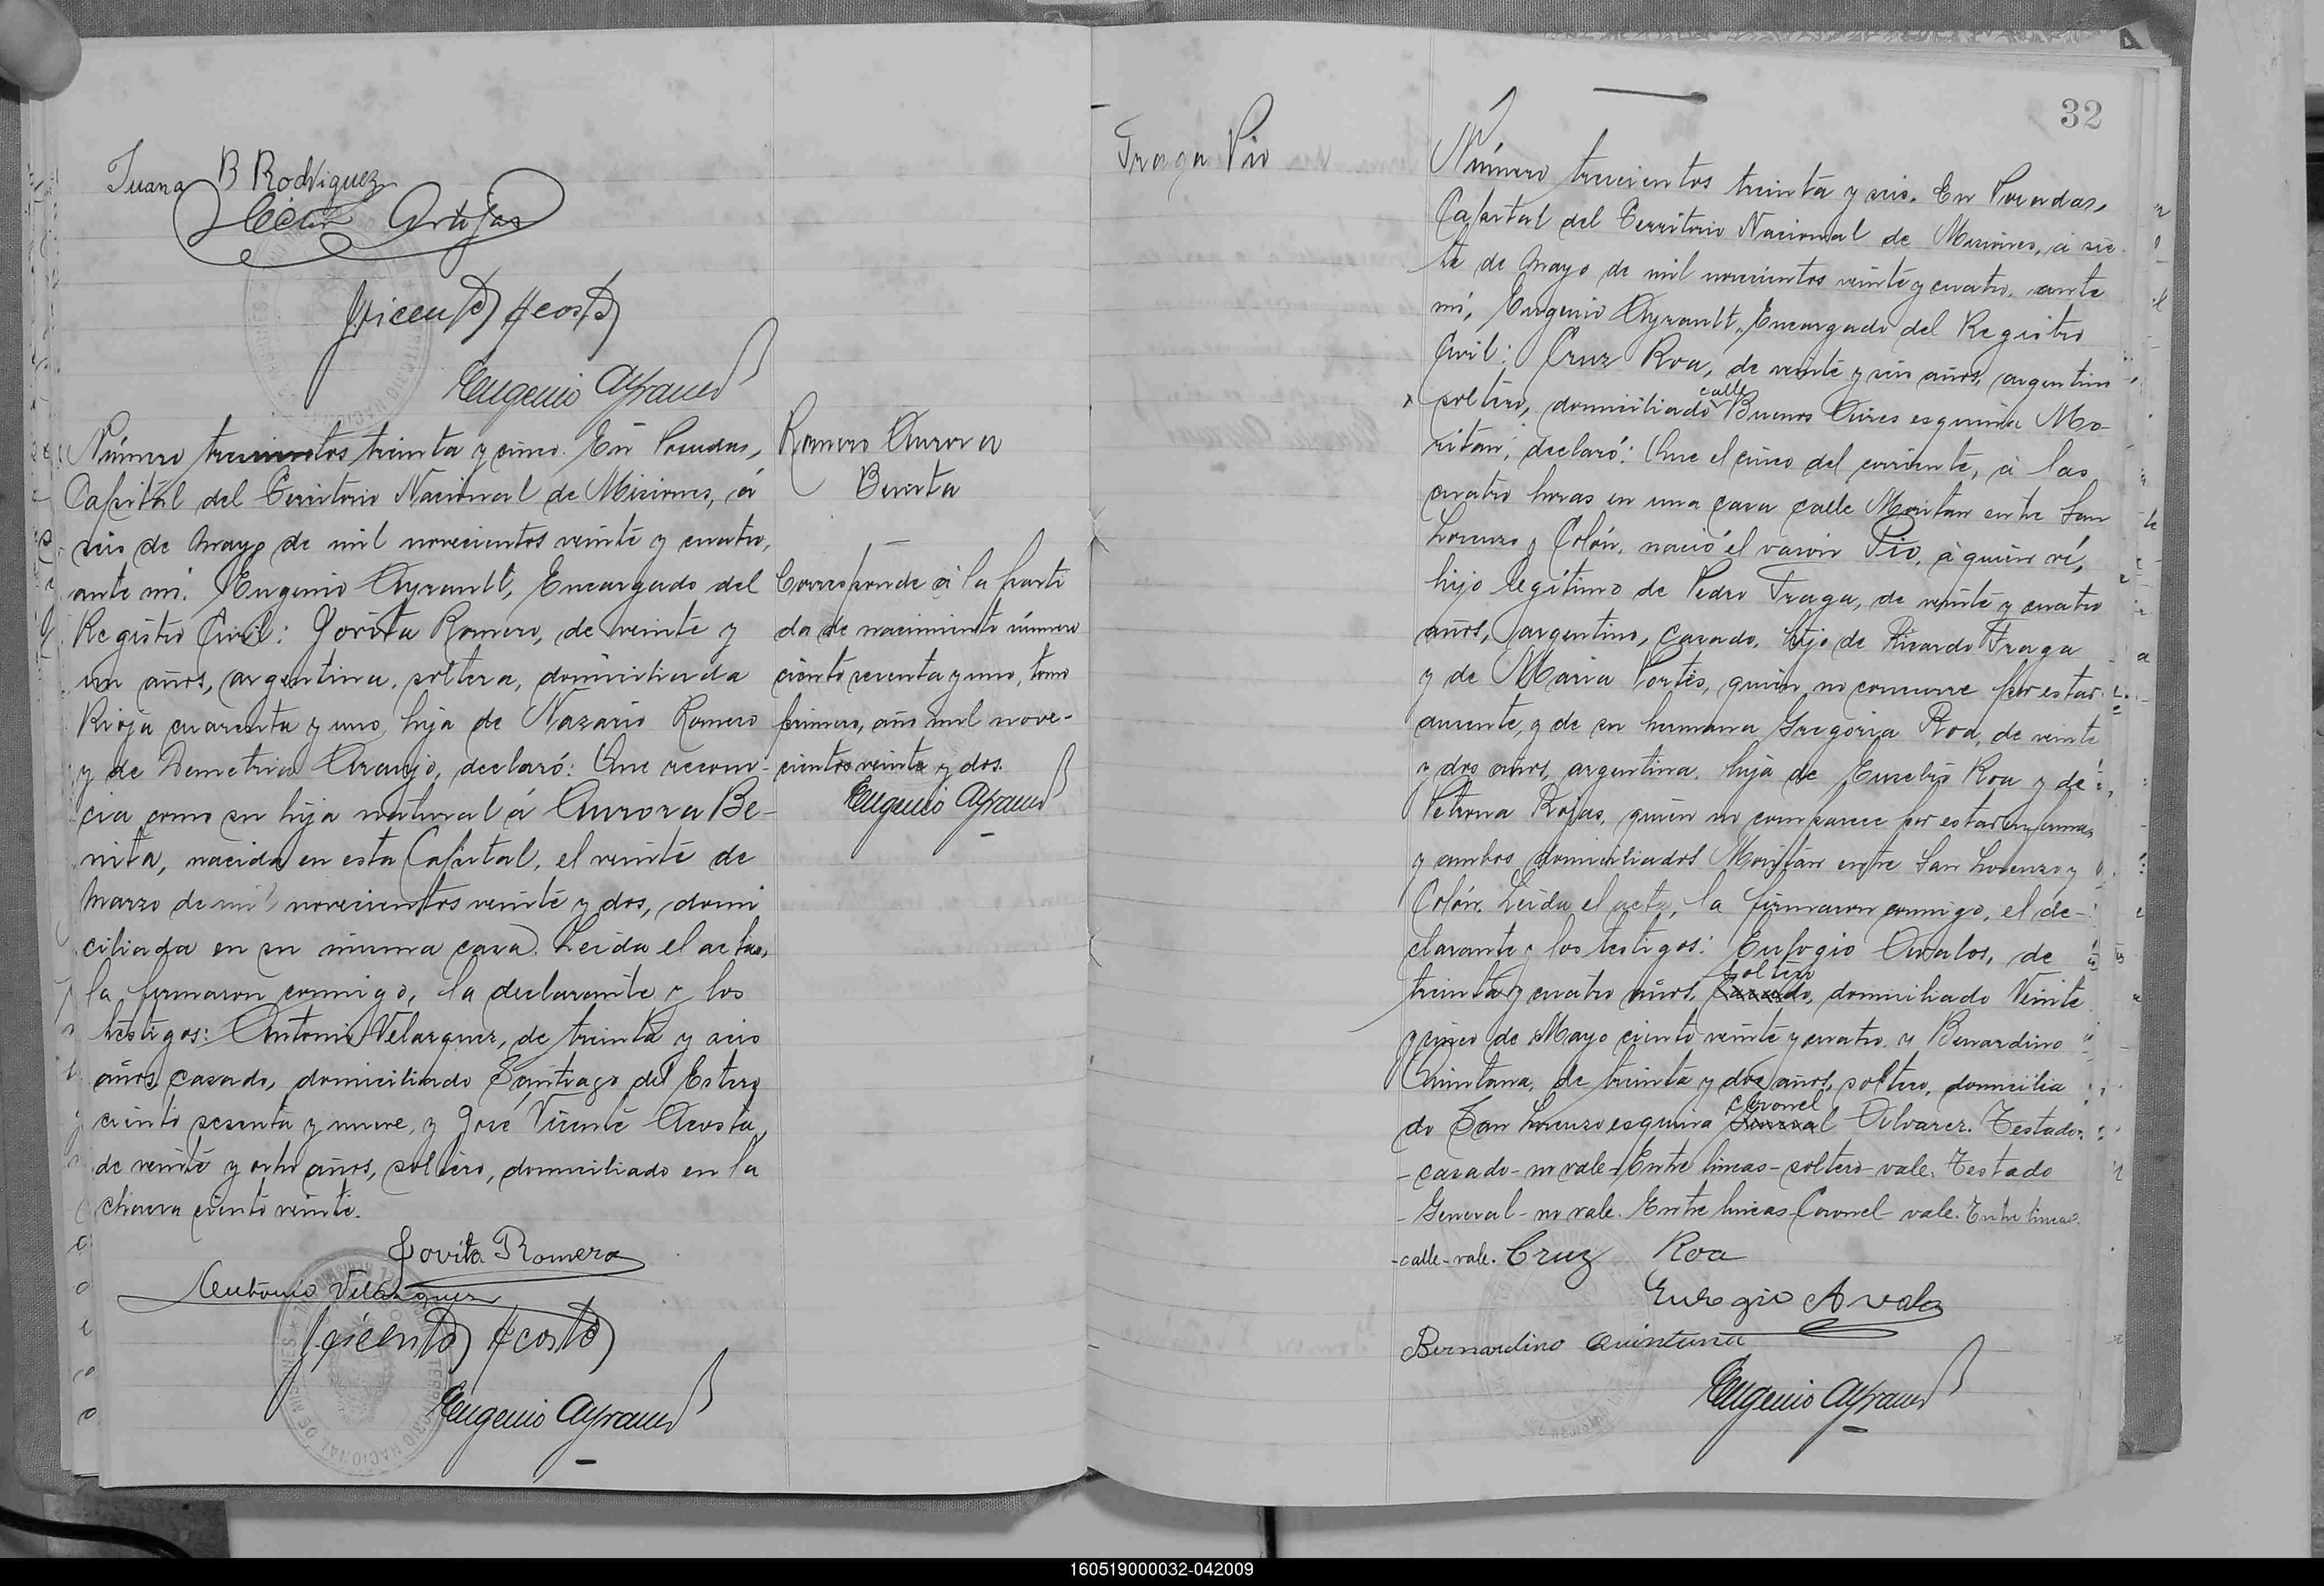 Juana B Rodriguez
Vicente Acosta
Eugenio Ayrault
Número trescientos treinta y cinco. En Posadas,
Capital del Territorio Nacional de Misiones, á
seis de Mayo de mil novecientos veinte y cuatro,
ante mi. Eugenio Ayrault, Encargado del
Registro Civil: Jovita Romero, de veinte y
un años, argentina, soltera, domiciliada
Rioja cuarenta y uno, hija de Nazario Romero
y de Demetria Araujo, declaró: Que recono-
cia como su hija natural á Aurora Be-
nita, nacida en esta Capital, el veinte de
Marzo de mil novecientos veinte y dos, domi
ciliada en su misma casa. Leida el acta,
la firmaron conmigo, la declarante y los
testigos: Antonio Velazquez, de treinta y seis
años, casado, domiciliado Santiago del Estero
ciento sesenta y nueve, y José Vicente Acosta,
de veinte y ocho años, soltero, domiciliado en la
chacra ciento veinte.
Jovita Romero
Antonio Velazquez
J Vicente Acosta
Eugenio Ayrault
Romero Aurora
Benita
Corresponde á la parti
da de nacimiento número
ciento sesenta y uno, tomo
primero, año mil nove-
cientos veinte y dos.
Eugenio Ayrault
32
Fraga Pio
Número trescientos treinta y seis. En Posadas,
Capital del Territorio Nacional de Misiones, á sie
te de Mayo de mil novecientos veinte y cuatro, ante
mi, Eugenio Ayrault, Encargado del Registro
Civil: Cruz Roa, de veinte y seis años, argentino
calle
soltero, domiciliado Buenos Aires esquina Mo-
ritan, declaró: Que el cinco del corriente, á las
cuatro horas en una casa calle Moritan entre San
Lorenzo y Colón, nació el varón Pio, á quien ví,
hijo legítimo de Pedro Fraga, de veinte y cuatro
años, argentino, casado, hijo de Ricardo Fraga
y de Maria Portes, quien no concurre por estar
ausente, y de su hermana Gregoria Roa, de veinte
y dos años, argentina, hija de Eusebio Roa y de
Petrona Rojas, quien no comparece por estar enferma,
y ambos domiciliados Moritán entre San Lorenzo y
Colón. Leida el acta, la firmaron conmigo, el de-
clarante y los testigos: Eulogio Avalos, de
soltero
treinta y cuatro años, casado, domiciliado Veinte
y cinco de Mayo ciento veinte y cuatro, y Bernardino
Quintana, de treinta y dos años, soltero, domicilia
Coronel
do San Lorenzo esquina General Alvarez. Testado:
- casado - no vale - Entre lineas - soltero - vale. Testado
- General - no vale. Entre lineas - Coronel vale. Entre lineas
- calle - vale. Cruz Roa
Eulogio Avalos
Bernardino Quintana
Eugenio Ayrault
160519000032-042009